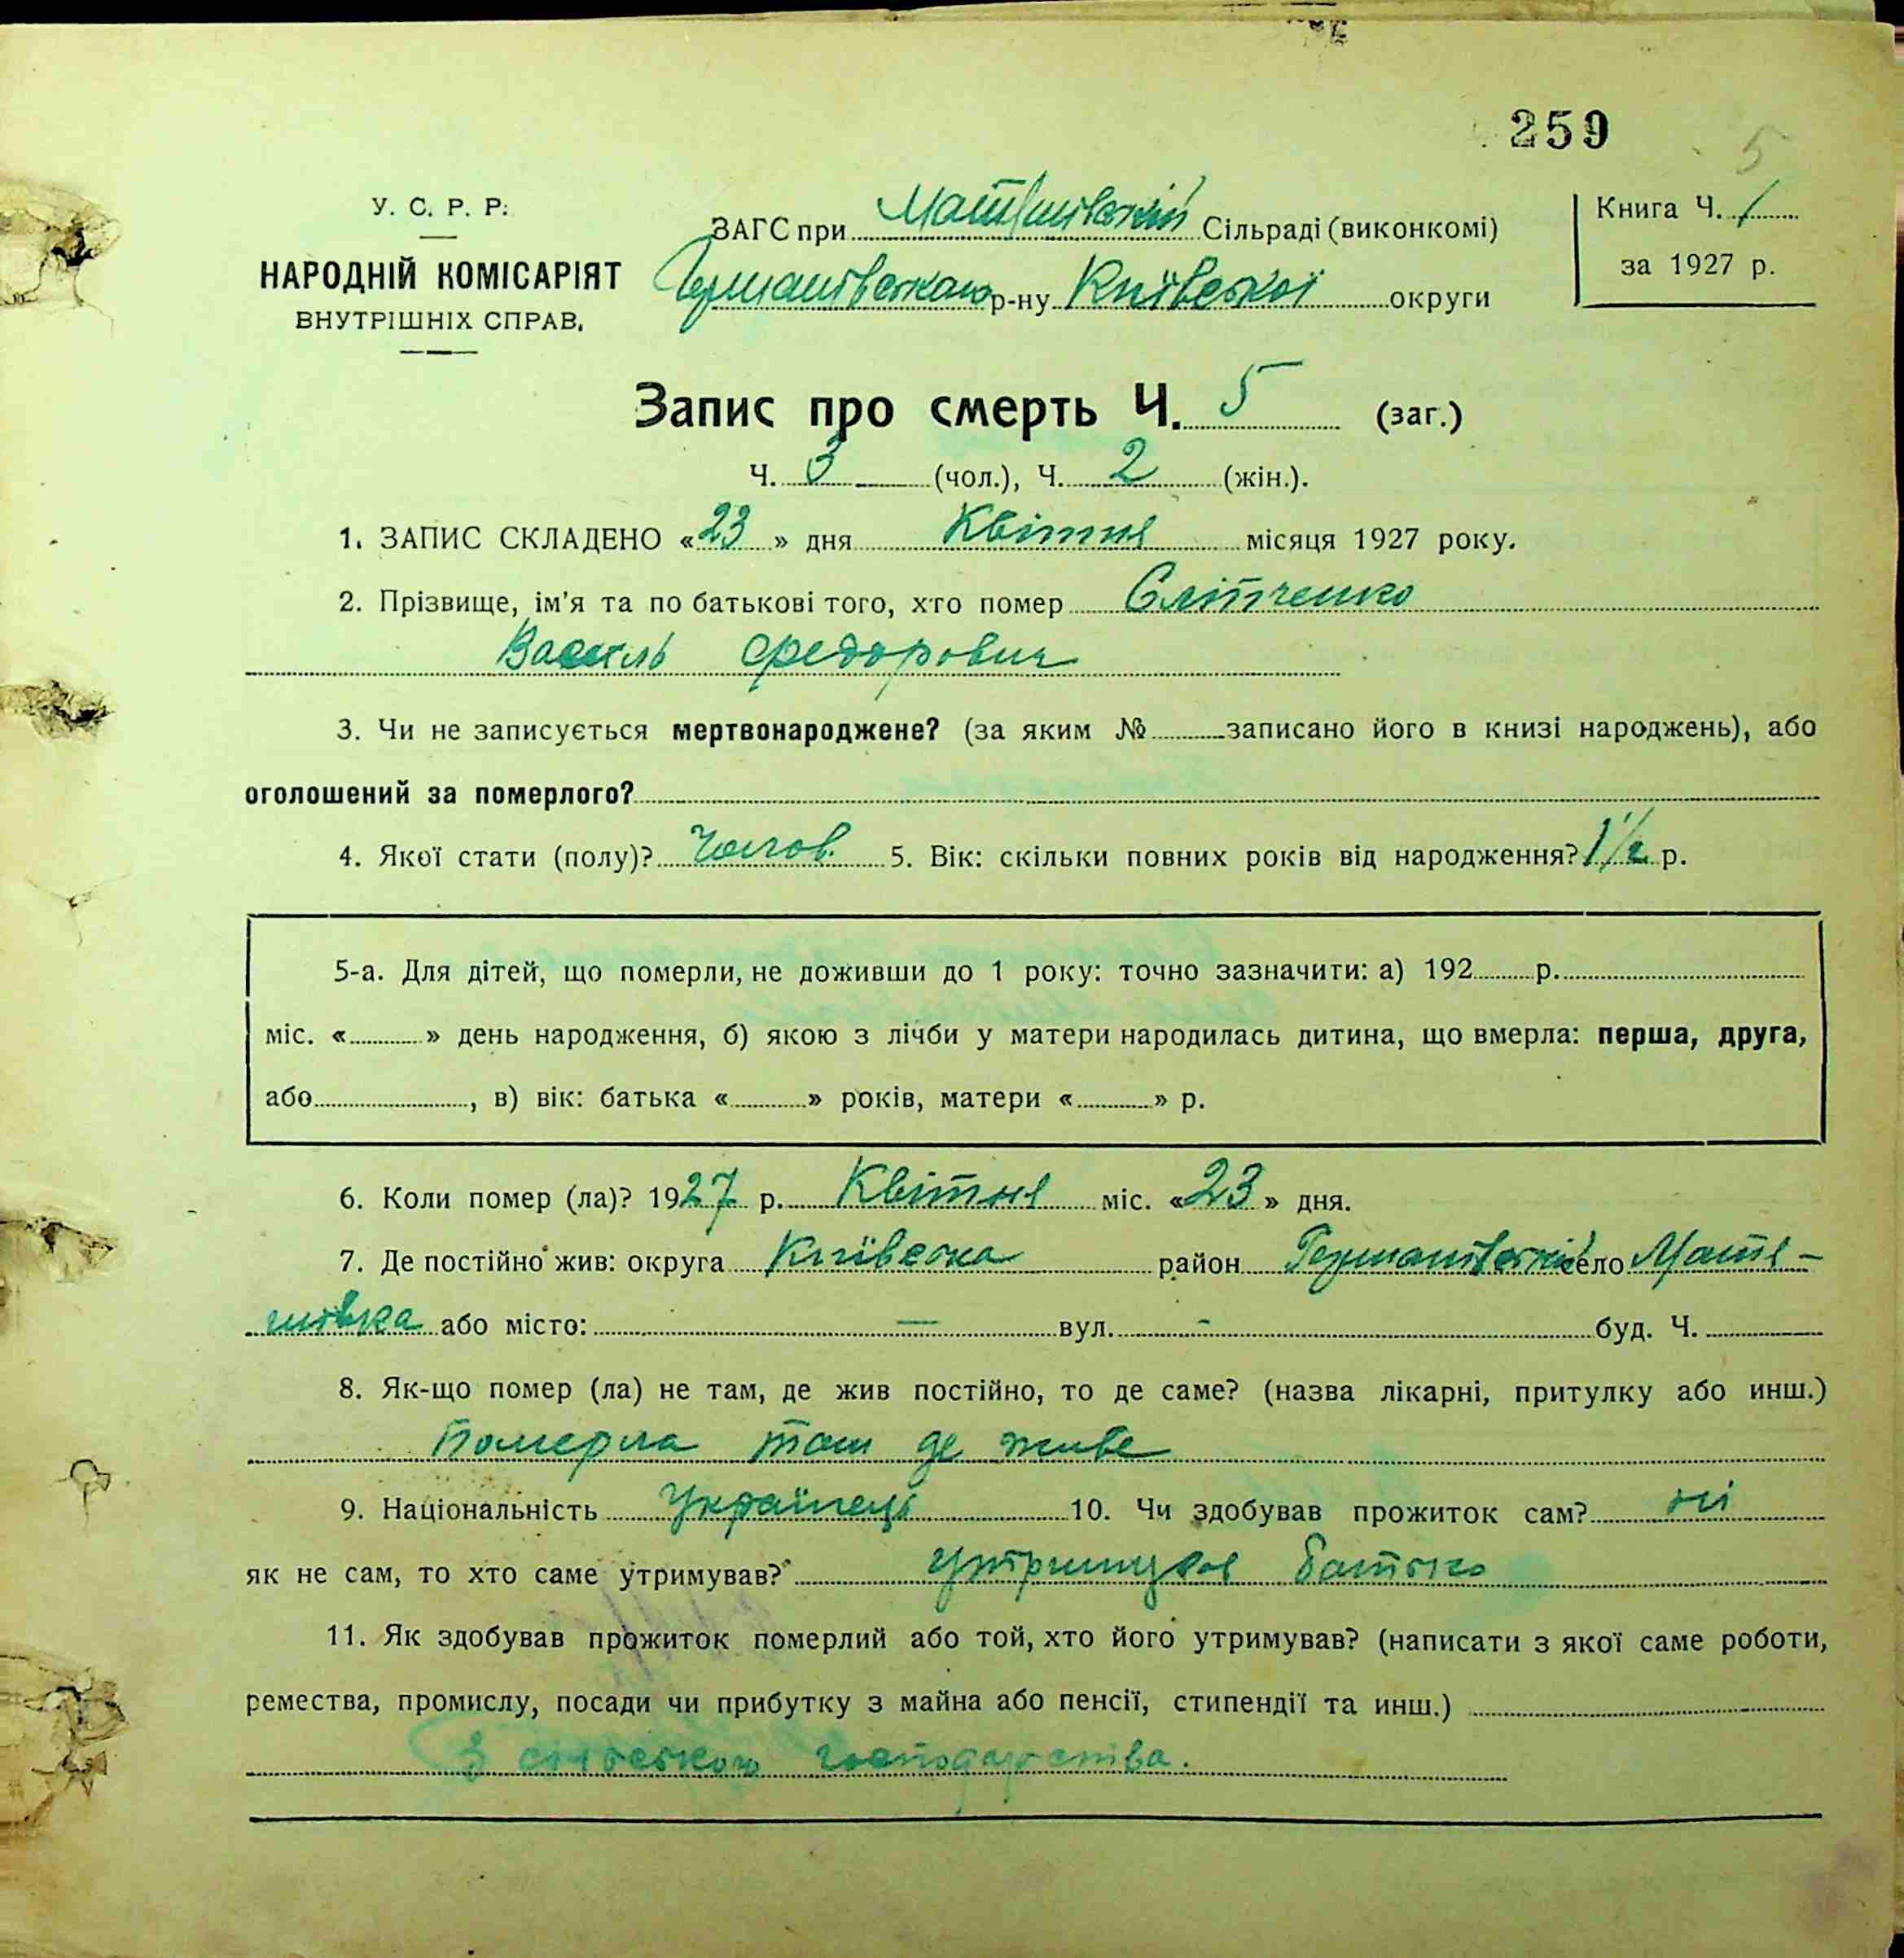 259
5
У. С. Р. Р.
НАРОДНІЙ КОМІСАРІЯТ
ВНУТРІШНІХ СПРАВ.
ЗАГС при Матяшівській Сільраді (виконкомі)
Германівського р-ну Київської округи
Книга Ч. 1
за 1927 р.
Запис про смерть Ч. 5 (заг.)
Ч. 3 (чол.), Ч. 2 (жін.).
1. ЗАПИС СКЛАДЕНО «23» дня Квітня місяця 1927 року.
2. Прізвище, ім'я та по батькові того, хто помер
Василь Федорович
3. Чи не записується мертвонароджене? (за яким № записано його в книзі народжень), або
оголошений за померлого?
4. Якої стати (полу)? Чолов. 5. Вік: скільки повних років від народження? 1 1/2 р.
5-а. Для дітей, що померли, не доживши до 1 року: точно зазначити: а) 192 р.
міс. « » день народження, б) якою з лічби у матери народилась дитина, що вмерла: перша, друга,
або , в) вік: батька « » років, матери « » р.
6. Коли помер (ла)? 1927 р. Квітня міс. «23» дня.
7. Де постійно жив: округа Київська район Германівський село Матя-
шівка або місто: — вул. - буд. Ч.
8. Як-що помер (ла) не там, де жив постійно, то де саме? (назва лікарні, притулку або инш.)
Померла там де живе
9. Національність Українець 10. Чи здобував прожиток сам? ні
як не сам, то хто саме утримував? утримував Батько
11. Як здобував прожиток померлий або той, хто його утримував? (написати з якої саме роботи,
ремества, промислу, посади чи прибутку з майна або пенсії, стипендії та инш.)
З сільського господарства.